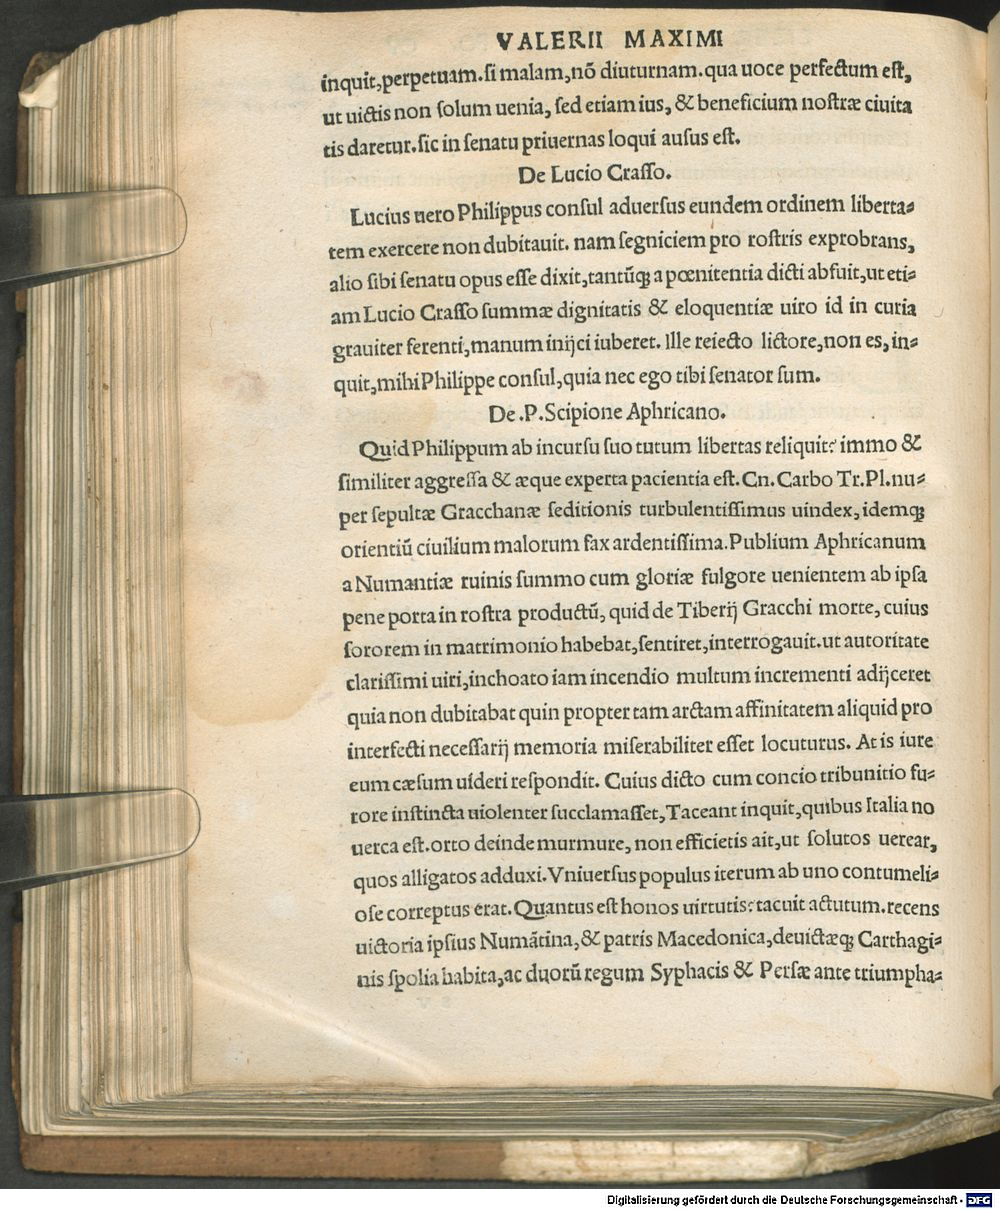 VALERII MAXIMI
inquit,perpetuam.si malam,nō diuturnam.qua uoce perfectum est,
ut uictis non solum uenia, sed etiam ius, & beneficium nostræ ciuita
tis daretur.sic in senatu priuernas loqui ausus est.
De Lucio Crasso.
Lucius uero Philippus consul aduersus eundem ordinem liberta⸗
tem exercere non dubitauit. nam segniciem pro rostris exprobrans,
alio sibi senatu opus esse dixit,tantūqꝫ a pœnitentia dicti abfuit,ut eti⸗
am Lucio Crasso summæ dignitatis & eloquentiæ uiro id in curia
grauiter ferenti,manum inijci iuberet. Ille reiecto lictore,non es,in⸗
quit,mihi Philippe consul,quia nec ego tibi senator sum.
De .P. Scipione Aphricano.
Quid Philippum ab incursu suo tutum libertas reliquit? immo &
similiter aggressa & æque experta pacientia est. Cn. Carbo Tr. Pl. nu⸗
per sepultæ Gracchanæ seditionis turbulentissimus uindex, idemqꝫ
orientiū ciuilium malorum fax ardentissima. Publium Aphricanum
a Numantiæ ruinis summo cum gloriæ fulgore uenientem ab ipsa
pene porta in rostra productū, quid de Tiberij Gracchi morte, cuius
sororem in matrimonio habebat,sentiret,interrogauit.ut autoritate
clarissimi uiri,inchoato iam incendio multum incrementi adijceret
quia non dubitabat quin propter tam arctam affinitatem aliquid pro
interfecti necessarij memoria miserabiliter esset locuturus. At is iure
eum cæsum uideri respondit. Cuius dicto cum concio tribunitio fu⸗
rore instincta uiolenter succlamasset, Taceant inquit, quibus Italia no
uerca est.orto deinde murmure, non efficietis ait,ut solutos uerear,
quos alligatos adduxi. Vniuersus populus iterum ab uno contumeli⸗
ose correptus erat. Quantus est honos uirtutis? tacuit actutum. recens
uictoria ipsius Numātina,& patris Macedonica,deuictæqꝫ Carthagi⸗
nis spolia habita,ac duorū regum Syphacis & Persæ ante triumpha⸗
Digitalisierung gefördert durch die Deutsche Forschungsgemeinschaft - DFG